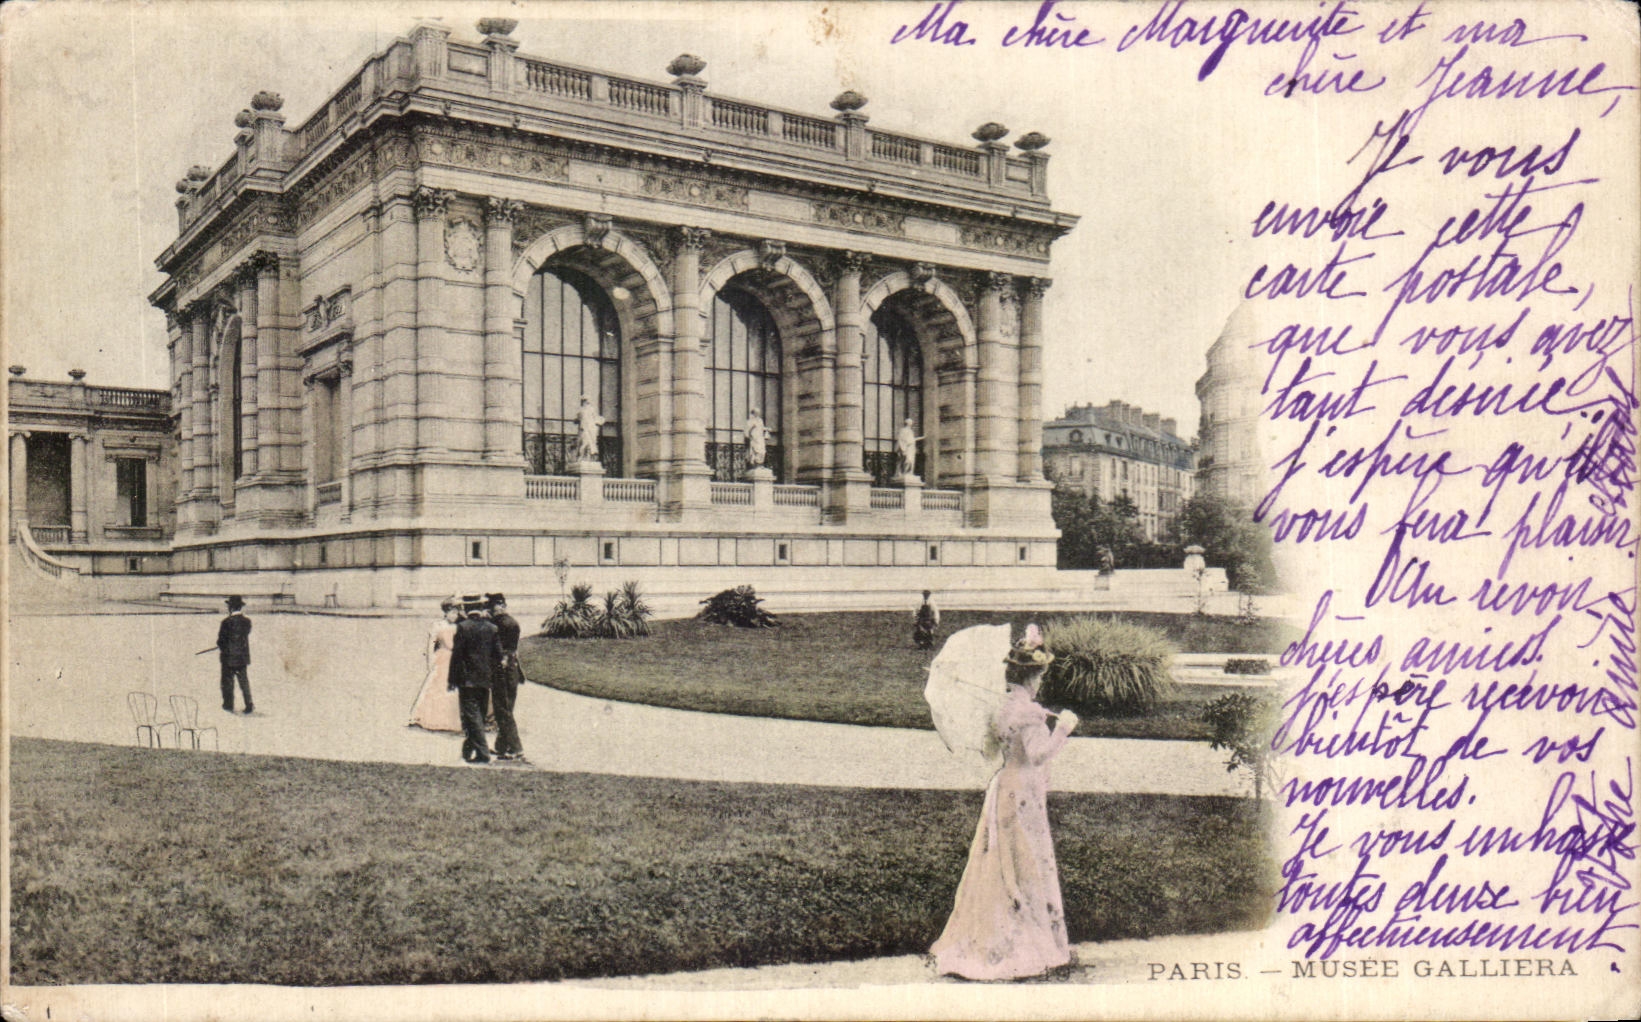 Ma chère Marguerite et ma
chère Jeanne,
Je vous
envoie cette
carte postale,
que vous avez
tant désirée.
J'espère qu'il
vous fera plaisir.
Au revoir
chères amies.
J'espère recevoir
bientôt de vos
nouvelles.
Je vous embrasse
toutes deux bien
affectueusement.
Votre
amie
PARIS. — MUSÉE GALLIERA